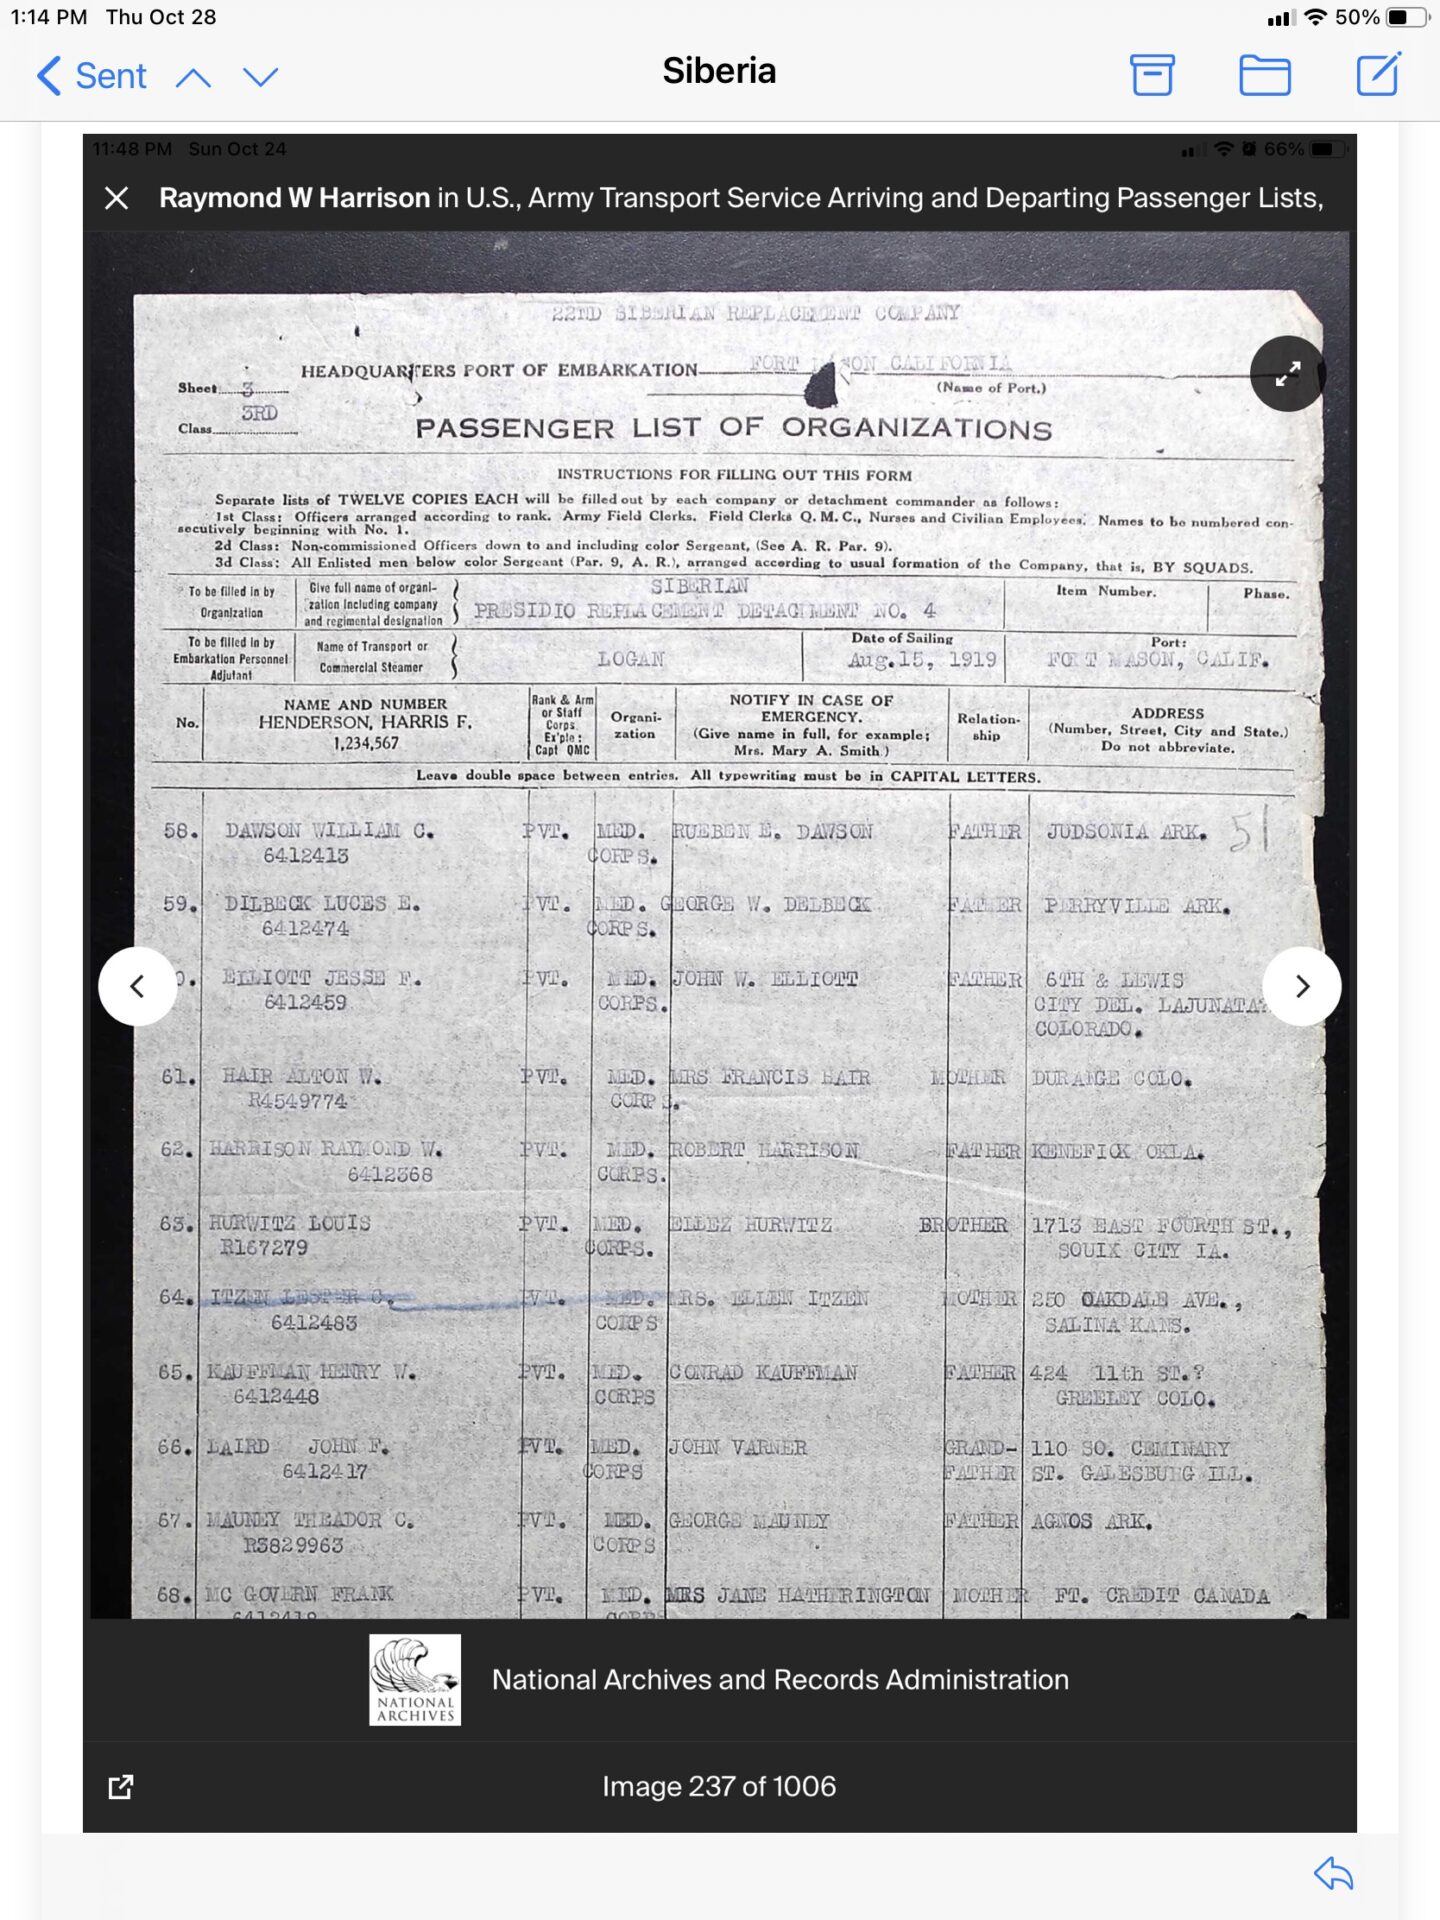 1:14 PM Thu Oct 28 50%
Sent Siberia
11:48 PM Sun Oct 24 66%
Raymond W Harrison in U.S., Army Transport Service Arriving and Departing Passenger Lists,
22ND SIBERIAN REPLACEMENT COMPANY
HEADQUARTERS PORT OF EMBARKATION FORT MASON CALIFORNIA
Sheet 3 (Name of Port.)
3RD
Class
PASSENGER LIST OF ORGANIZATIONS
INSTRUCTIONS FOR FILLING OUT THIS FORM
Separate lists of TWELVE COPIES EACH will be filled out by each company or detachment commander as follows:
1st Class: Officers arranged according to rank. Army Field Clerks, Field Clerks Q. M. C., Nurses and Civilian Employees. Names to be numbered con-
secutively beginning with No. 1.
2d Class: Non-commissioned Officers down to and including color Sergeant, (See A. R. Par. 9).
3d Class: All Enlisted men below color Sergeant (Par. 9, A. R.), arranged according to usual formation of the Company, that is, BY SQUADS.
To be filled in by Organization
Give full name of organi-
zation including company
and regimental designation
SIBERIAN
PRESIDIO REPLACEMENT DETACHMENT NO. 4
Item Number. Phase.
To be filled in by
Embarkation Personnel
Adjutant
Name of Transport or
Commercial Steamer
LOGAN
Date of Sailing
Aug.15, 1919
Port:
FORT MASON, CALIF.
No.
NAME AND NUMBER
HENDERSON, HARRIS F.
1,234,567
Rank & Arm
or Staff
Corps
Ex'ple:
Capt QMC
Organi-
zation
NOTIFY IN CASE OF
EMERGENCY.
(Give name in full, for example;
Mrs. Mary A. Smith)
Relation-
ship
ADDRESS
(Number, Street, City and State.)
Do not abbreviate.
Leave double space between entries. All typewriting must be in CAPITAL LETTERS.
58. DAWSON WILLIAM C. PVT. MED. RUEBEN E. DAWSON FATHER JUDSONIA ARK. 51
6412413 CORPS.
59. DILBECK LUCES E. PVT. MED. GEORGE W. DELBECK FATHER PERRYVILLE ARK.
6412474 CORPS.
0. ELLIOTT JESSE F. PVT. MED. JOHN W. ELLIOTT FATHER 6TH & LEWIS
6412459 CORPS. CITY DEL. LAJUNATA?
COLORADO.
61. HAIR ALTON W. PVT. MED. MRS FRANCIS HAIR MOTHER DURANGE COLO.
R4549774 CORPS.
62. HARRISON RAYMOND W. PVT. MED. ROBERT HARRISON FATHER KENEFICK OKLA.
6412368 CORPS.
63. HURWITZ LOUIS PVT. MED. ELLEZ HURWITZ BROTHER 1713 EAST FOURTH ST.,
R167279 CORPS. SOUIX CITY IA.
64. ITZEN LESTER C. PVT. MED. MRS. ELLEN ITZEN MOTHER 250 OAKDALE AVE.,
6412483 CORPS SALINA KANS.
65. KAUFFMAN HENRY W. PVT. MED. CONRAD KAUFFMAN FATHER 424 11th ST.?
6412448 CORPS GREELEY COLO.
66. LAIRD JOHN F. PVT. MED. JOHN VARNER GRAND- 110 SO. CEMINARY
6412417 CORPS FATHER ST. GALESBURG ILL.
67. MAUNEY THEADOR C. PVT. MED. GEORGE MAUNEY FATHER AGNOS ARK.
R3829963 CORPS
68. MC GOVERN FRANK PVT. MED. MRS JANE HATHERINGTON MOTHER FT. CREDIT CANADA
6412418 CORPS
NATIONAL
ARCHIVES
National Archives and Records Administration
Image 237 of 1006